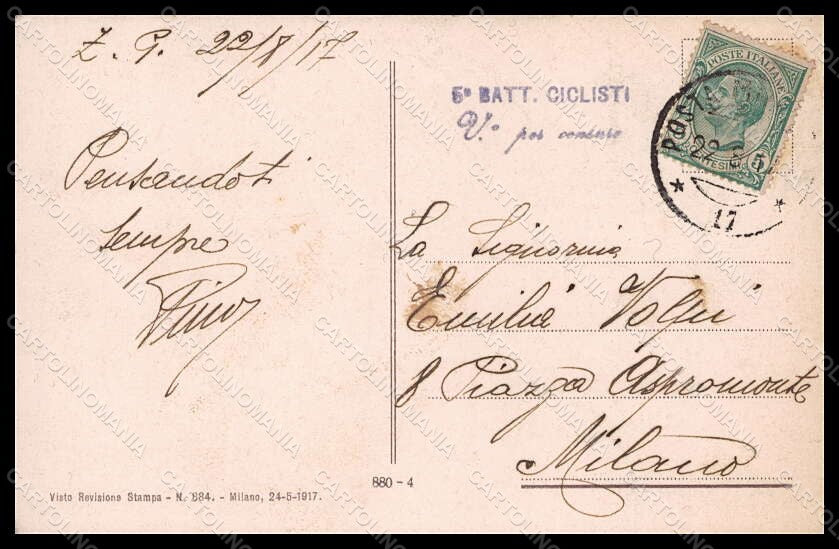 Z. G. 22/8/17
Pensandoti
sempre
Pino
5° BATT. CICLISTI
V.° per censura
POSTE ITALIANE
POSTA
22 8 17
17
La Signorina
Emilia Volpi
8 Piazza Aspromonte
Milano
Visto Revisione Stampa - N. 884. - Milano, 24-5-1917.
880 - 4
CARTOLINOMANIA